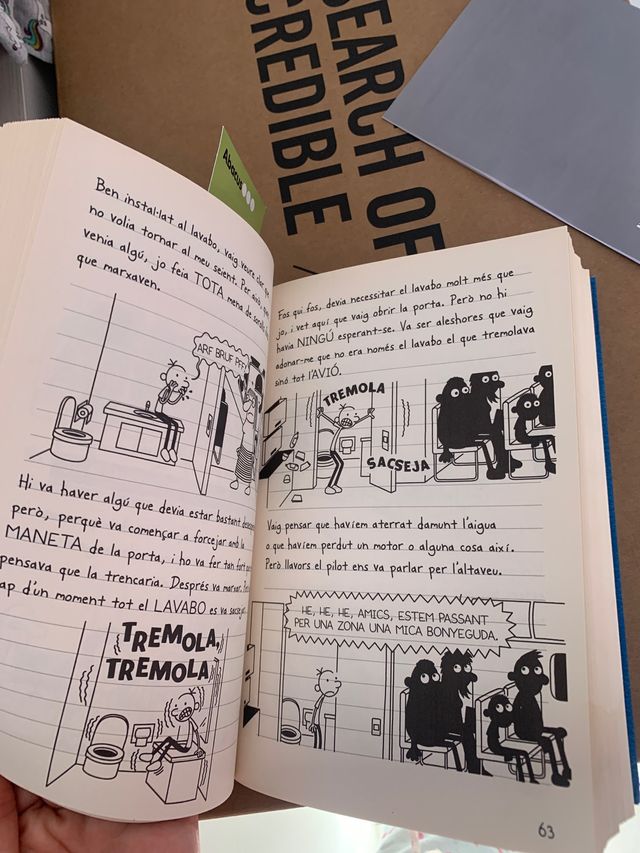 SEARCH OF
CREDIBLE
Abacus
Ben instal·lat al lavabo, vaig veure clar que
no volia tornar al meu seient. Per això, quan
venia algú, jo feia TOTA mena de sorolls
que marxaven.
ARF BRUF PFF
Hi va haver algú que devia estar bastant
però, perquè va començar a forcejar amb la
MANETA de la porta, i ho va fer tan fort
pensava que la trencaria. Després va marxar.
d'un moment tot el LAVABO es va
TREMOLA,
TREMOLA
Fos qui fos, devia necessitar el lavabo molt més que
jo, i vet aquí que vaig obrir la porta. Però no hi
havia NINGÚ esperant-se. Va ser aleshores que vaig
adonar-me que no era només el lavabo el que tremolava
sinó tot l'AVIÓ.
TREMOLA
SACSEJA
Vaig pensar que havíem aterrat damunt l'aigua
o que havíem perdut un motor o alguna cosa així.
Però llavors el pilot ens va parlar per l'altaveu.
HE, HE, HE, AMICS, ESTEM PASSANT
PER UNA ZONA UNA MICA BONYEGUDA.
63